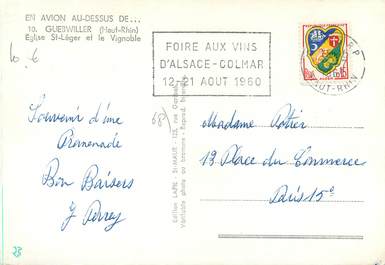 EN AVION AU-DESSUS DE...
10. GUEBWILLER (Haut-Rhin)
Eglise St-Léger et le Vignoble
FOIRE AUX VINS
D'ALSACE-COLMAR
12-21 AOUT 1960
R.P
HAUT-RHIN
0,05
68)
Souvenir d'une
Promenade
Bon Baisers
J Perrey
Edition LAPIE, St-MAUR - 123, rue
Véritable photo au bromure - Reprod. interdite
Madame
13 Place du Commerce
Paris 15e